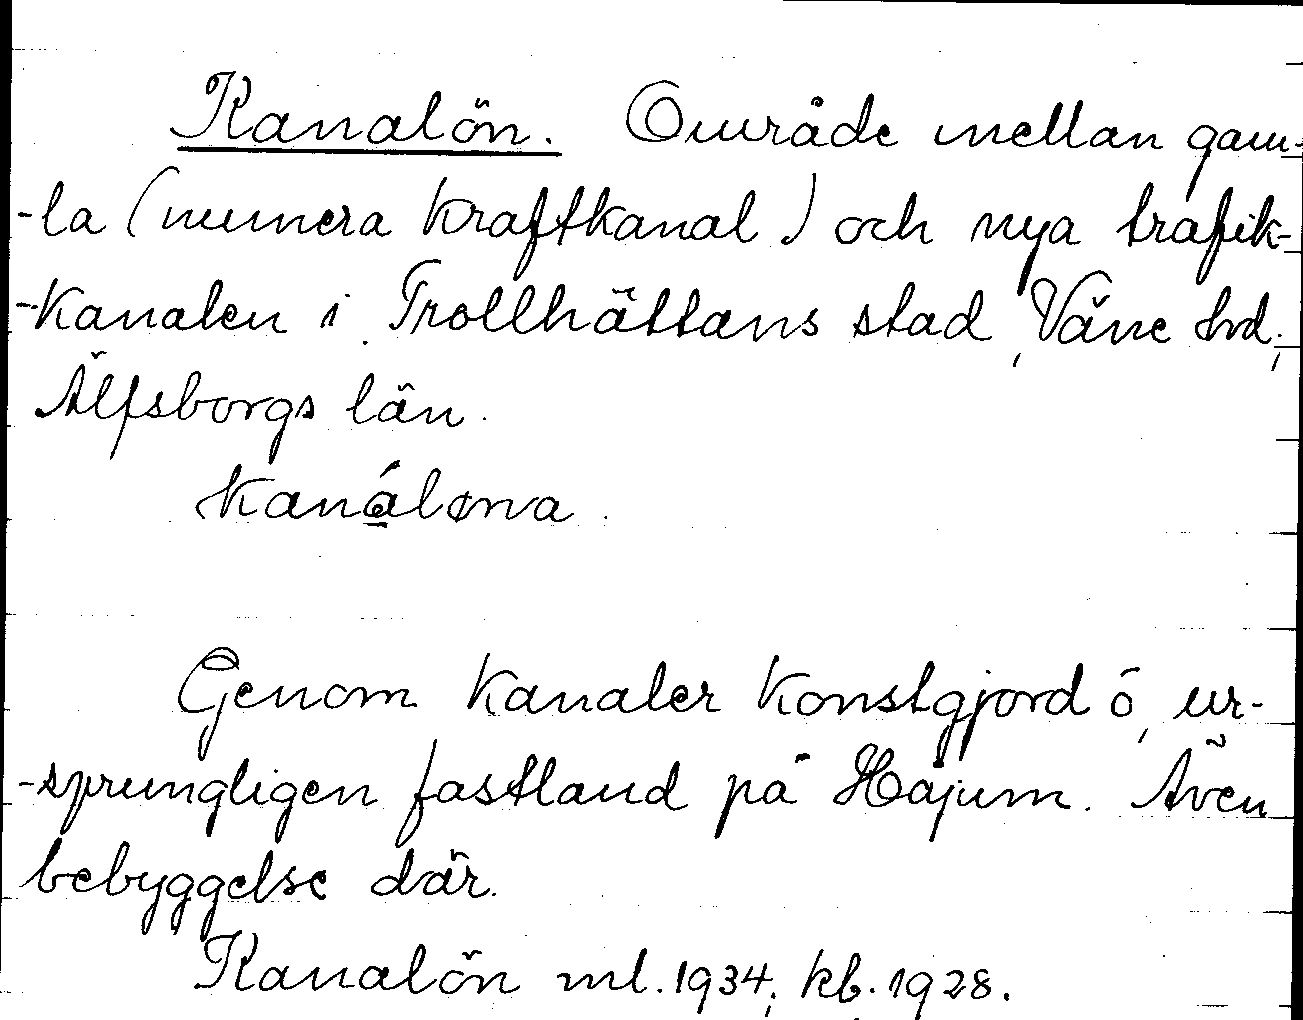 Kanalön. Område mellan gam-
-la (numera kraftkanal) och nya trafik-
-kanalen i Trollhättans stad, Väne hd,
Älfsborgs län.
kanáløna.
Genom kanaler konstgjord ö, ur-
-sprungligen fastland på Hojum. Även
bebyggelse där.
Kanalön ml. 1934; kb. 1928.